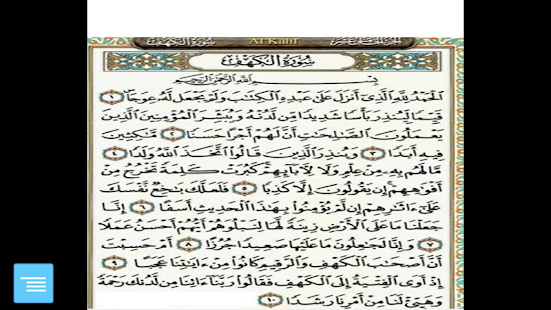 الجزء الخامس عشر Al Kahf سورة الكهف
سُورَةُ الكَهْفِ
بِسْمِ اللَّهِ الرَّحْمَٰنِ الرَّحِيمِ
ٱلْحَمْدُ لِلَّهِ ٱلَّذِىٓ أَنزَلَ عَلَىٰ عَبْدِهِ ٱلْكِتَٰبَ وَلَمْ يَجْعَل لَّهُۥ عِوَجَا ١
قَيِّمًا لِّيُنذِرَ بَأْسًا شَدِيدًا مِّن لَّدُنْهُ وَيُبَشِّرَ ٱلْمُؤْمِنِينَ ٱلَّذِينَ
يَعْمَلُونَ ٱلصَّٰلِحَٰتِ أَنَّ لَهُمْ أَجْرًا حَسَنًا ٢ مَّٰكِثِينَ
فِيهِ أَبَدًا ٣ وَيُنذِرَ ٱلَّذِينَ قَالُوا۟ ٱتَّخَذَ ٱللَّهُ وَلَدًا ٤
مَّا لَهُم بِهِۦ مِنْ عِلْمٍ وَلَا لِءَابَآئِهِمْ كَبُرَتْ كَلِمَةً تَخْرُجُ مِنْ
أَفْوَٰهِهِمْ إِن يَقُولُونَ إِلَّا كَذِبًا ٥ فَلَعَلَّكَ بَٰخِعٌ نَّفْسَكَ
عَلَىٰٓ ءَاثَٰرِهِمْ إِن لَّمْ يُؤْمِنُوا۟ بِهَٰذَا ٱلْحَدِيثِ أَسَفًا ٦ إِنَّا
جَعَلْنَا مَا عَلَى ٱلْأَرْضِ زِينَةً لَّهَا لِنَبْلُوَهُمْ أَيُّهُمْ أَحْسَنُ عَمَلًا
٧ وَإِنَّا لَجَٰعِلُونَ مَا عَلَيْهَا صَعِيدًا جُرُزًا ٨ أَمْ حَسِبْتَ
أَنَّ أَصْحَٰبَ ٱلْكَهْفِ وَٱلرَّقِيمِ كَانُوا۟ مِنْ ءَايَٰتِنَا عَجَبًا ٩
إِذْ أَوَى ٱلْفِتْيَةُ إِلَى ٱلْكَهْفِ فَقَالُوا۟ رَبَّنَآ ءَاتِنَا مِن لَّدُنكَ رَحْمَةً
وَهَيِّئْ لَنَا مِنْ أَمْرِنَا رَشَدًا ١٠